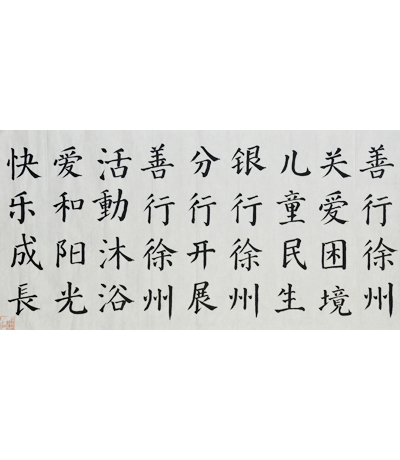 善行徐州
关爱困境
儿童民生
银行徐州
分行开展
善行徐州
活動沐浴
爱和阳光
快乐成長